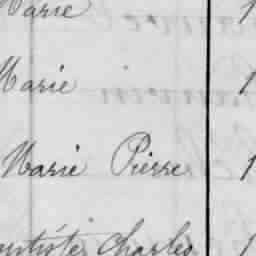 Marie 1
Marie 1
Marie Pierre 1
Charles 1